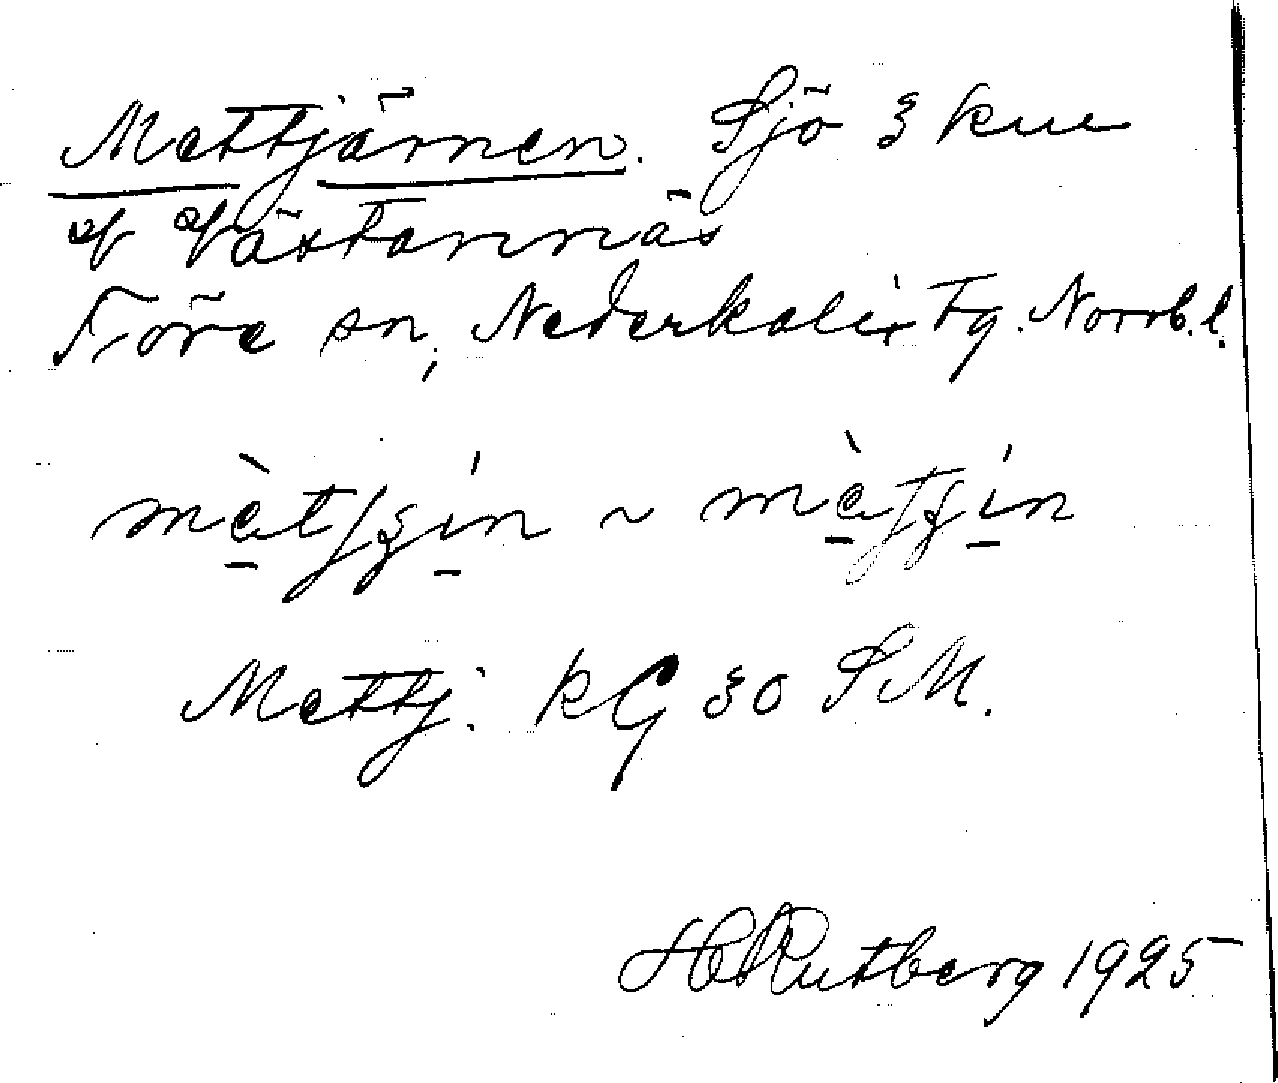 Mettjärnen. Sjö 3 km
v Västannäs
Töre sn, Nederkalix tg. Norrb. l.
Mettj. KG 30 SM.
H Rutberg 1925